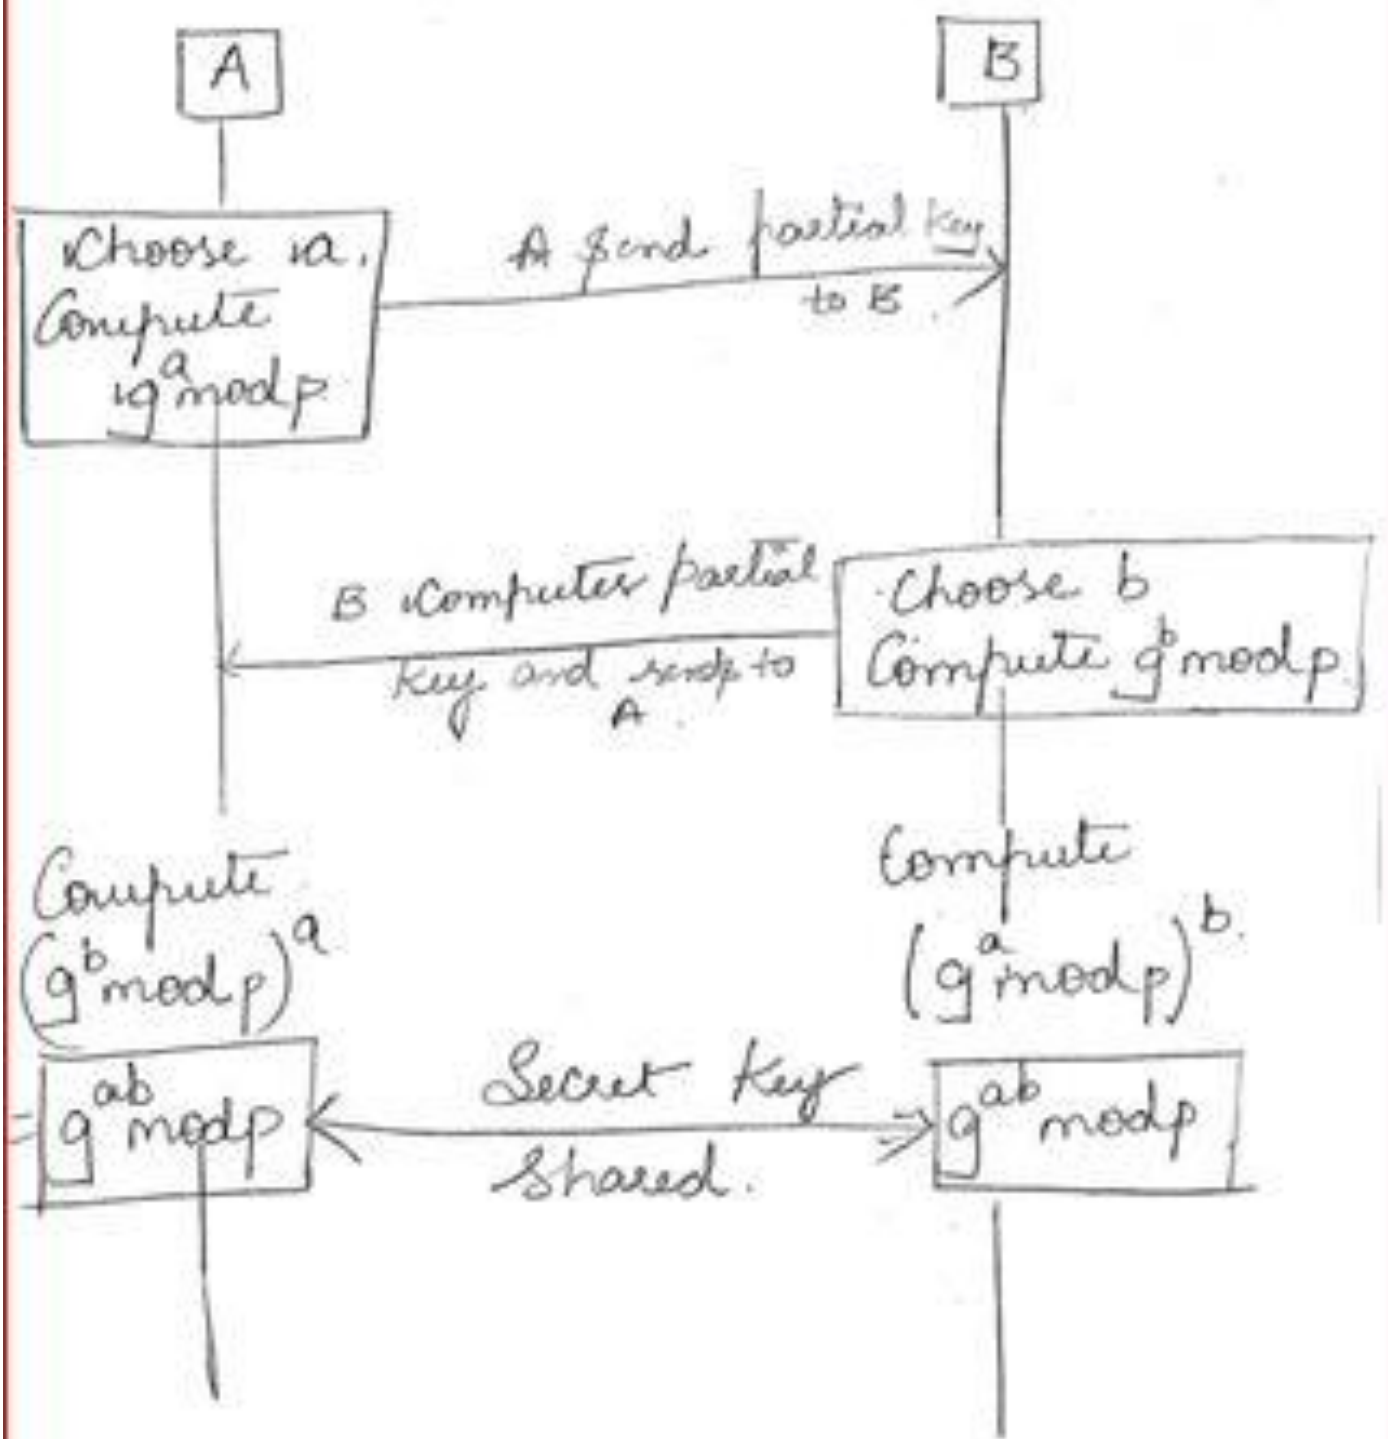 A
B
Choose a.
Compute
g^a mod p
A send partial key
to B.
B Computes partial
key and sends to
A.
Choose b
Compute g^b mod p.
Compute
(g^b mod p)^a
Compute
(g^a mod p)^b.
g^ab mod p
Secret Key
Shared.
g^ab mod p